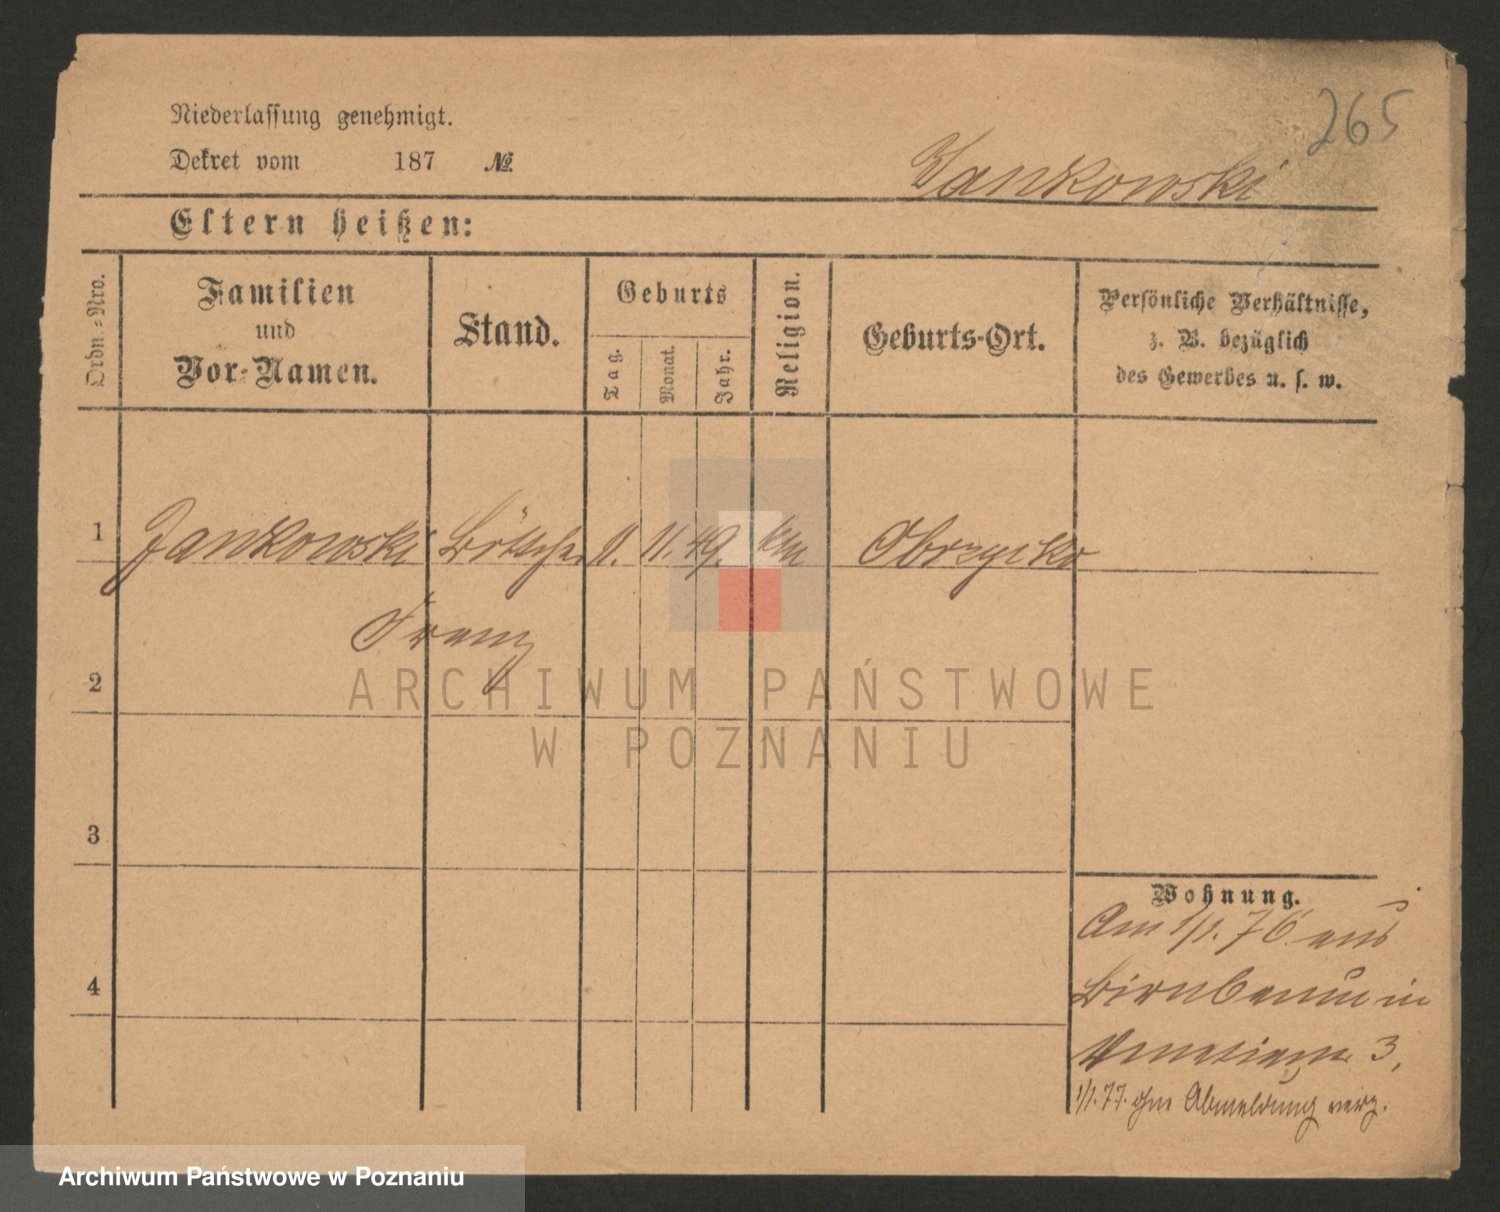 265
Niederlassung genehmigt.
Dekret vom 187 №.
Jankowski
Eltern heißen:
Ordn.-Nro.
Familien
und
Vor-Namen.
Stand.
Geburts
Tag.
Monat.
Jahr.
Religion.
Geburts-Ort.
Persönliche Verhältnisse,
z. B. bezüglich
des Gewerbes u. s. w.
1 Jankowski Böttcher 11. 49. kth Obrzycko
Franz
2
ARCHIWUM PAŃSTWOWE
W POZNANIU
3
Wohnung.
Am 1/1. 76 aus
Birnbaum in
3,
4
1/1. 77. ohne Abmeldung verz.
Archiwum Państwowe w Poznaniu